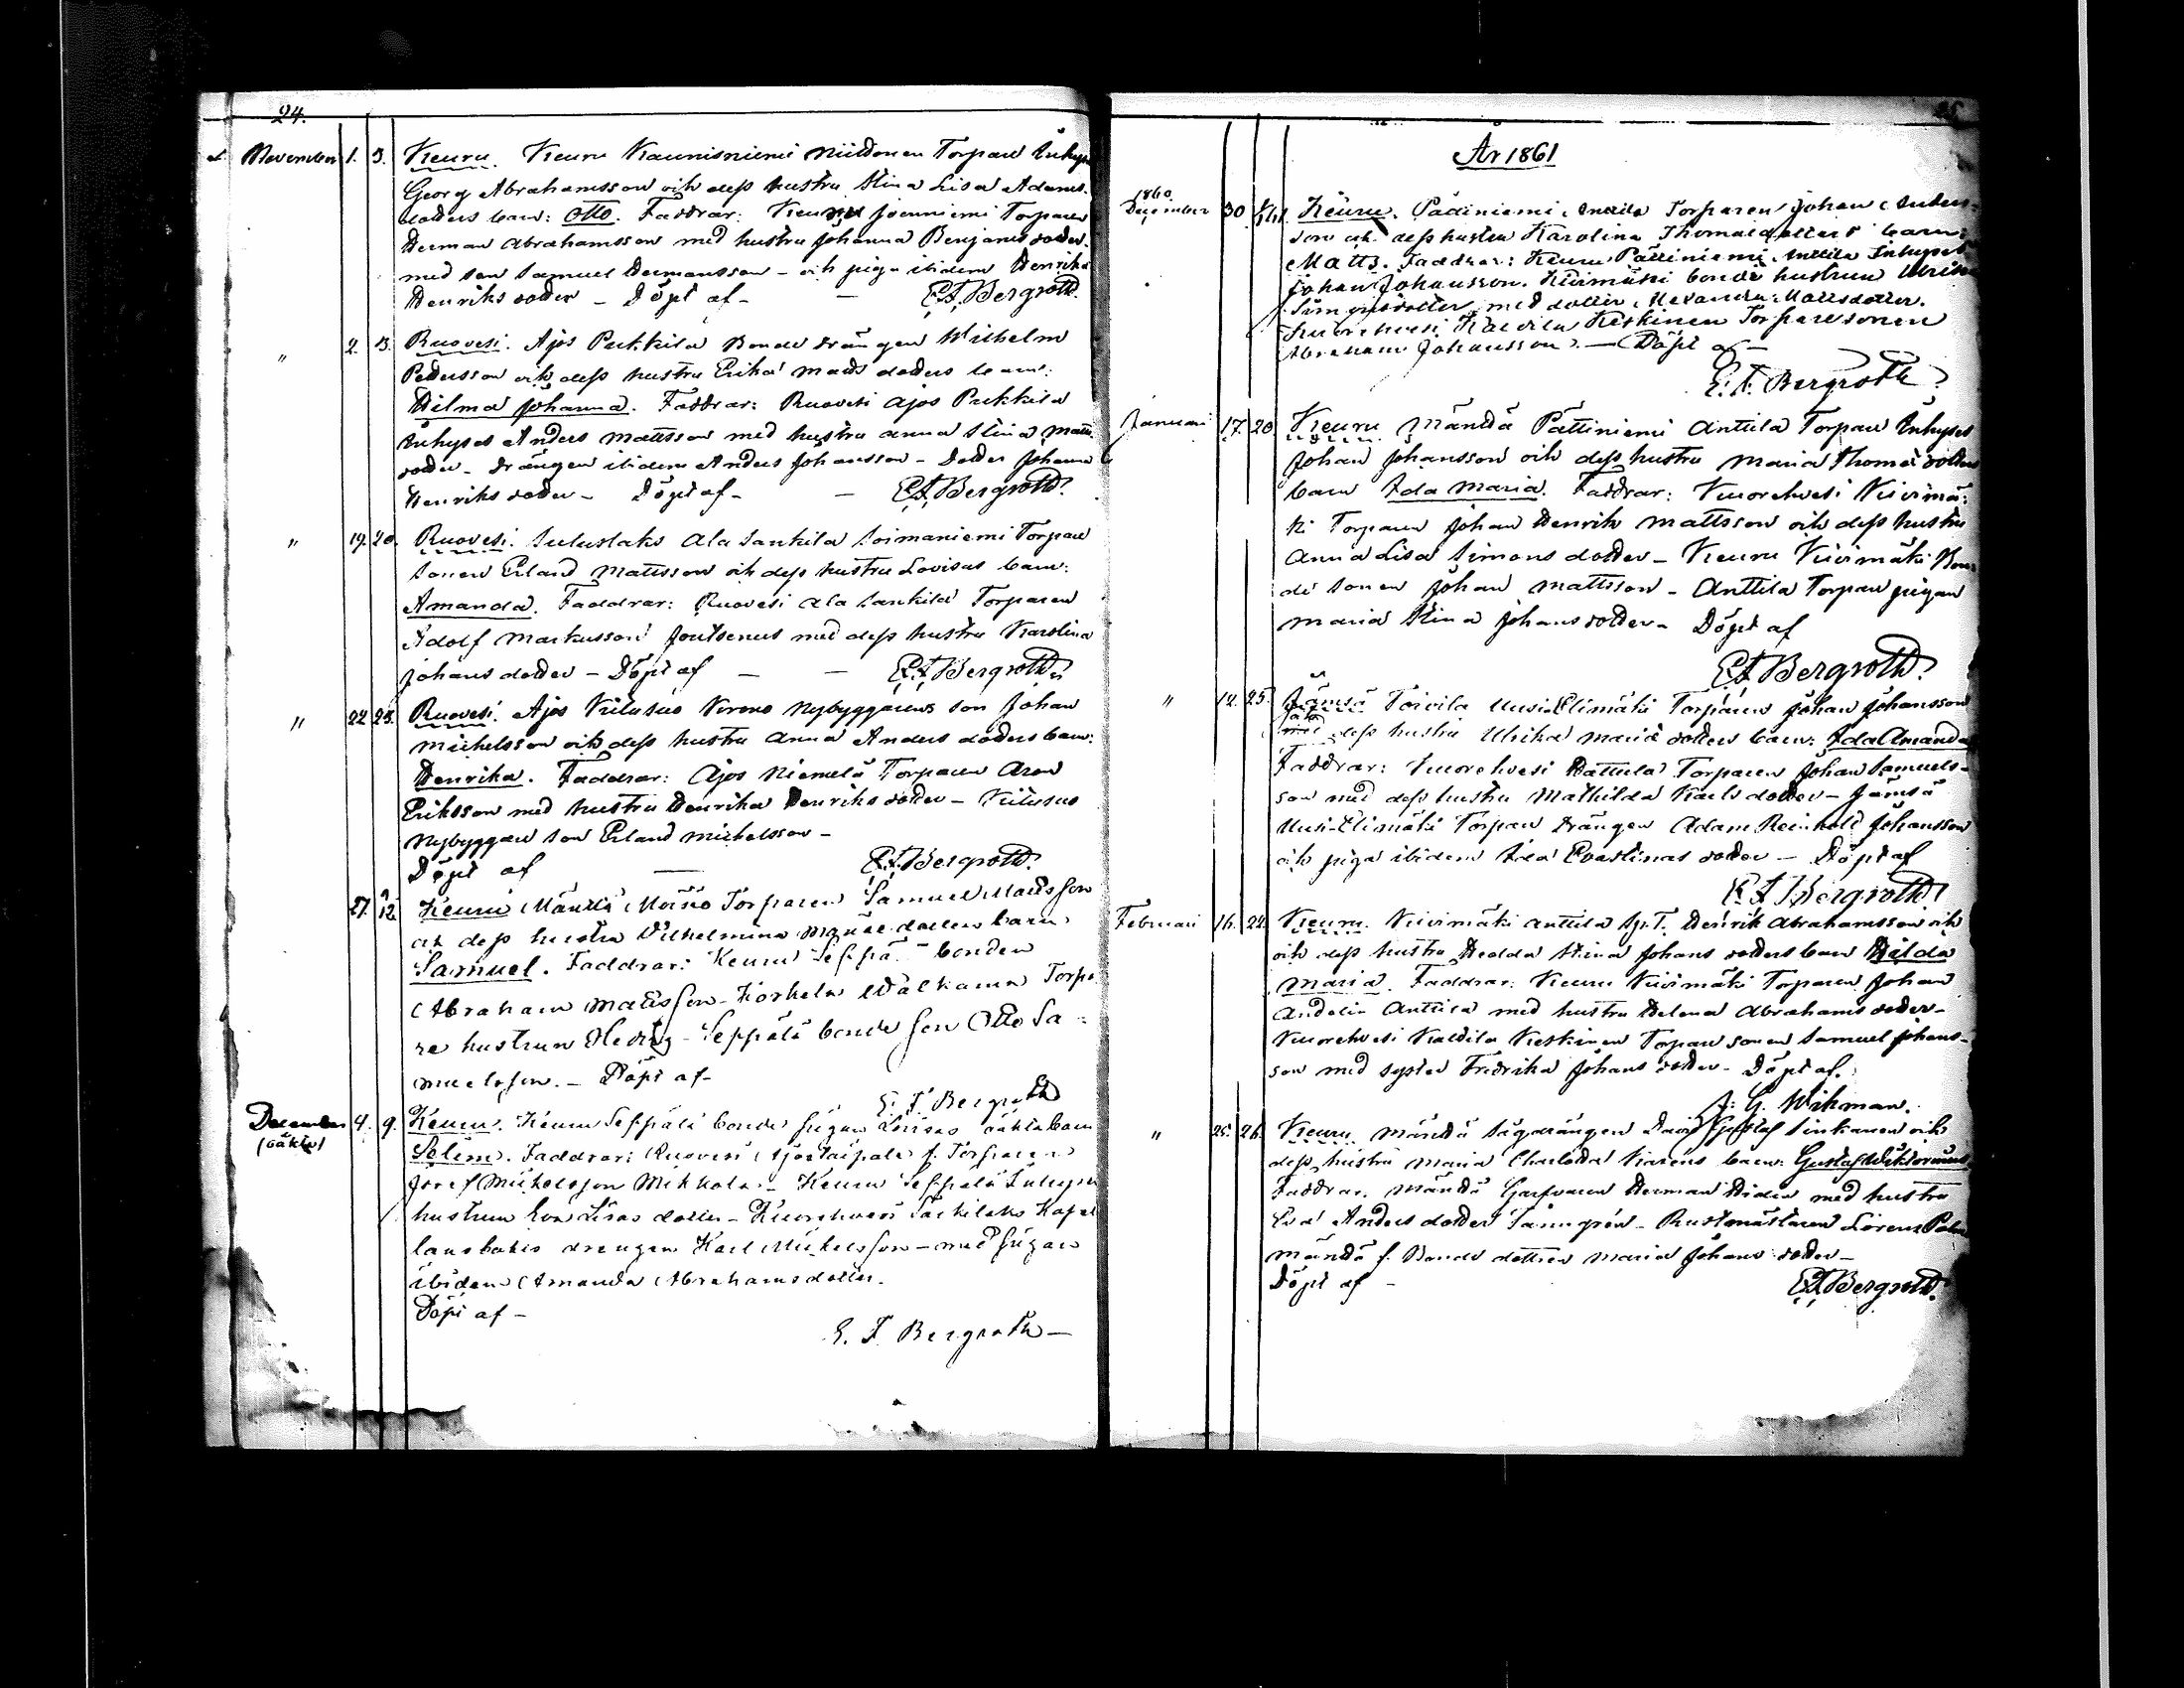 24.
November 1. 3. Keuru. Keuru Kaunisniemi Niittonen Torpare Inhyses
Georg Abrahamsson och dess hustru Stina Lisa Adams
dotters barn: Otto. Faddrar: Keuru Joenniemi Torparen
Herman Abrahamsson med hustru Johanna Benjams dotter
med son Samuel Hermansson - och piga ibidem Henrika
Henriks dotter - Döpt af - E. F. Bergroth.
" 2. 3. Ruovesi. Ajos Pukkila Bonde drängen Wilhelm
Pettersson och dess hustru Erika Mats dotters barn:
Hilma Johanna. Faddrar: Ruovesi Ajos Pukkila
Inhyses Anders Mattsson med hustru Anna Stina Matts
dotter - drängen ibidem Anders Johansson - Dotter Johanna
Henriks dotter - Döpt af - E. F. Bergroth.
" 19. 20. Ruovesi. Suluslaks Ala Sankila Soimaniemi Torpare
Sonen Erland Mattsson och dess hustru Lovisas barn:
Amanda. Faddrar: Ruovesi Ala Sankila Torparen
Adolf Markusson Joutsenus med dess hustru Karolina
Johans dotter - Döpt af - E. F. Bergroth.
" 22 25. Ruovesi. Ajos Kitusuo Nybyggarens son Johan
Michelsson och dess hustru Anna Anders dotters barn:
Henrika. Faddrar: Ajos Niemelä Torparen Aron
Eriksson med hustru Henrika Henriks dotter - Kitusuo
Nybyggare son Erland Michelsson -
Döpt af - E. F. Bergroth.
27. 12. Keuru Mänttä Torparen Samuel Matsson
och dess hustru Vilhelmina dotters barn
Samuel. Faddrar: Keuru Seppä bonden
Abraham Matsson - Torpa
re hustrun Hedvig - Seppälä bonde son Otto Sa-
muelsson. - Döpt af -
E. F. Bergroth
December 4. 9. Keuru. Keuru Seppälä bonde pigan Lovisas oäkta barn
(oäkta) Selim. Faddrar: Ruovesi f. Torparen
Josef Mickelsson Mikkola - Keuru Seppälä Inhyses
hustrun Eva Lisas dotter - Kuorehvesi Kapel
lansbohls drengen Karl Mickelsson - med pigan
ibidem Amanda Abrahams dotter.
Döpt af -
E. F. Bergroth -
År 1861
1860
December 30 Keuru. Pättiniemi Anttila Torparen Johan Anders-
son och dess hustru Karolina Thomasdotters barn:
Matts. Faddrar: Keuru Pättiniemi Anttila Inhyses
Johan Johansson. Kiivimäki bonde hustrun Ulrika
Simonsdotter med dotter Alexandra Mattsdotter.
Kuorehvesi Keskinen Torparesonen
Abraham Johansson. - Döpt af -
E. F. Bergroth
Januari 17. 20 Keuru Mänttä Pättiniemi Anttila Torpare Inhyses
Johan Johansson och dess hustru Maria Thomas dotters
barn Ida Maria. Faddrar: Kuorehvesi Kiivimä-
ki Torparen Johan Henrik Mattsson och dess hustru
Anna Lisa Simons dotter - Keuru Kiivimäki Bon-
de sonen Johan Mattsson - Anttila Torpare pigan
Maria Stina Johans dotter - Döpt af
E. F. Bergroth.
" 12. 25. Jämsä Toivila Uusi-Elimäki Torparen Johan Johansson
och dess hustru Ulrika Maria dotters barn: Ida Amanda
Faddrar: Kuorehvesi Torparen Johan Samuels-
son med dess hustru Mathilda Karls dotter - Jämsä
Uusi-Elimäki Torpare drängen Adam Reinhold Johansson
och piga ibidem Ida dotter - Döpt af
E. F. Bergroth
Februari 16. 24. Keuru. Kiivimäki Anttila Henrik Abrahamsson och
och dess hustru Hedda Stina Johans dotters barn Hilda
Maria. Faddrar: Keuru Kiivimäki Torparen Johan
Andelin Anttila med hustru Helena Abrahams dotter -
Kuorehvesi Keskinen Torpare sonen Samuel Johans-
son med syster Fredrika Johans dotter - Döpt af.
J. G. Wikman.
" 25. 26. Keuru. Mänttä Sågdrängen David Gustaf Sinkanen och
dess hustru Maria Charlotta Karens barn: Gustaf Wiktorinus
Faddrar. Mänttä Garfvaren Herman Hiden med hustru
Eva Anders dotter - Rustmästaren Lorenz
Mänttä f. Bonde dottren Maria Johans dotter -
Döpt af - E. F. Bergroth.